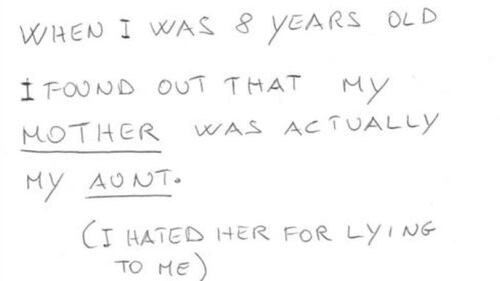 WHEN I WAS 8 YEARS OLD
I FOUND OUT THAT MY
MOTHER WAS ACTUALLY
MY AUNT.
(I HATED HER FOR LYING
TO ME)